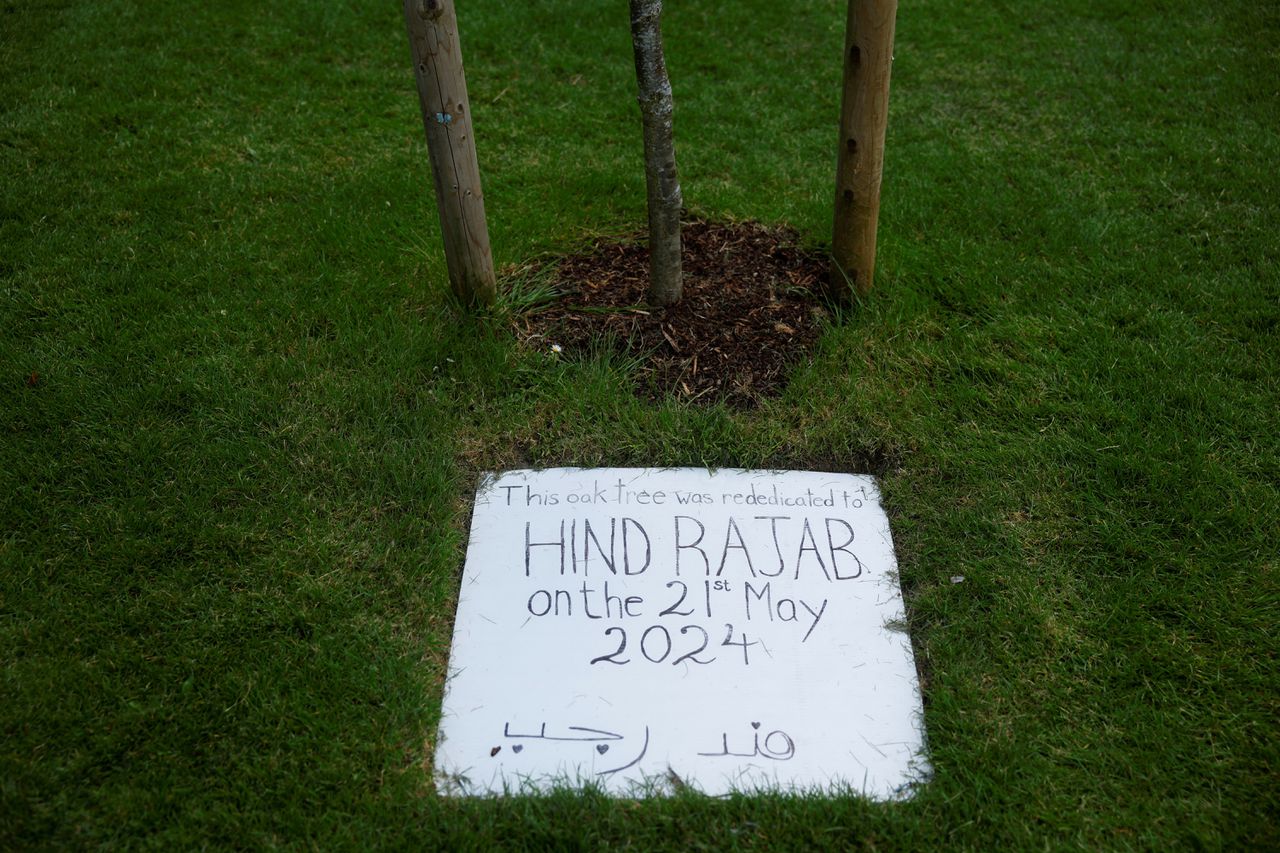 This oak tree was rededicated to
HIND RAJAB
on the 21st May
2024
هند رجب